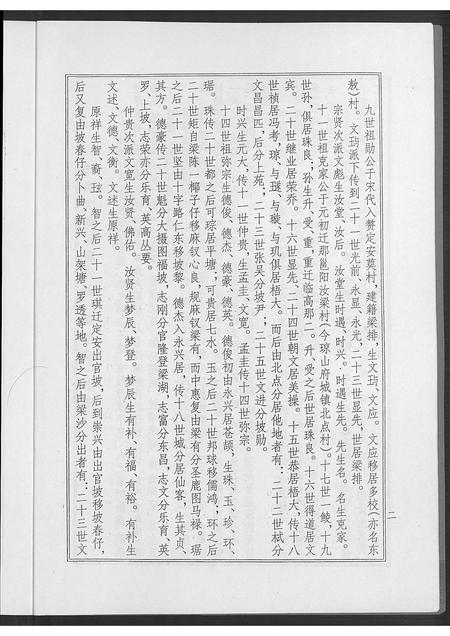 九世祖勋公于宋代入赘定安莫村，建籍梁排，生文玏、文应。文应移居多校（亦名东
敖）村。文玏派下传到二十一世光前、永显、永光，二十三世显先，世居梁排。
宗贤次派文彪生汝堂、汝后。汝堂生时遇、时兴。时遇生先。先生名。名生克家。
十一世祖克家公于元初迁那邕阳汝梁村（今琼山府城镇北点村）。十七世一鲮，十九
世孙，俱居珠良；孙生升、受、重，重迁临高那二。升、受之后世居珠良。十六世得道居文
宾。二十世继业居荣乔。十六世显先、二十四世朝文居美操。十五世恭居梧大，传十八
世祯居冯考，琼、与琎、与璇、与玑俱居梧大。而后由北点分居他地者有：二十二世栻分
文昌昌匹，后分上苑；二十三世张吴分坡尹；二十五世文进分坡勋。
时兴生元大，传十一世仲贵，生孟圭、文宽。孟圭传十四世弥宗。
十四世祖弥宗生德俊、德杰、德豪、德英。德俊初由永兴居苍颉，生珠、玉、珍、环、
琚。珠传二十世都之后可琮居平塘；可贵居七水。玉之后二十世邦球移儒鸿；环之后
二十世矩自梁陈一椰子仔移麻钗心良，规麻钗梁有，而中惠复由梁有分圣鹿图马禄。琚
之后二十一世坚由十字路仁东移坡黎。德杰入永兴居，传十八世城分居仙客，生其贞、
其方。德豪传二十世魁分大摄图福坡，志刚分官隆登梁湖，志富分东昌，志文分乐育、英
罗、上坡，志荣亦分乐育、英高丛要。
仲贵次派文宽生汝贤、佛佑。汝贤生梦辰、梦登。梦辰生有补、有福、有裕。有补生
文述、文德、文衡。文述生原祥。
原祥生智、裔、琼。智之后二十一世琪迁定安出官坡，后到崇兴由出官坡移坡春仔，
后又复由坡春仔分卜曲、新兴、山架塘、罗透等地。智之后由梁沙分出者有：二十三世文
二